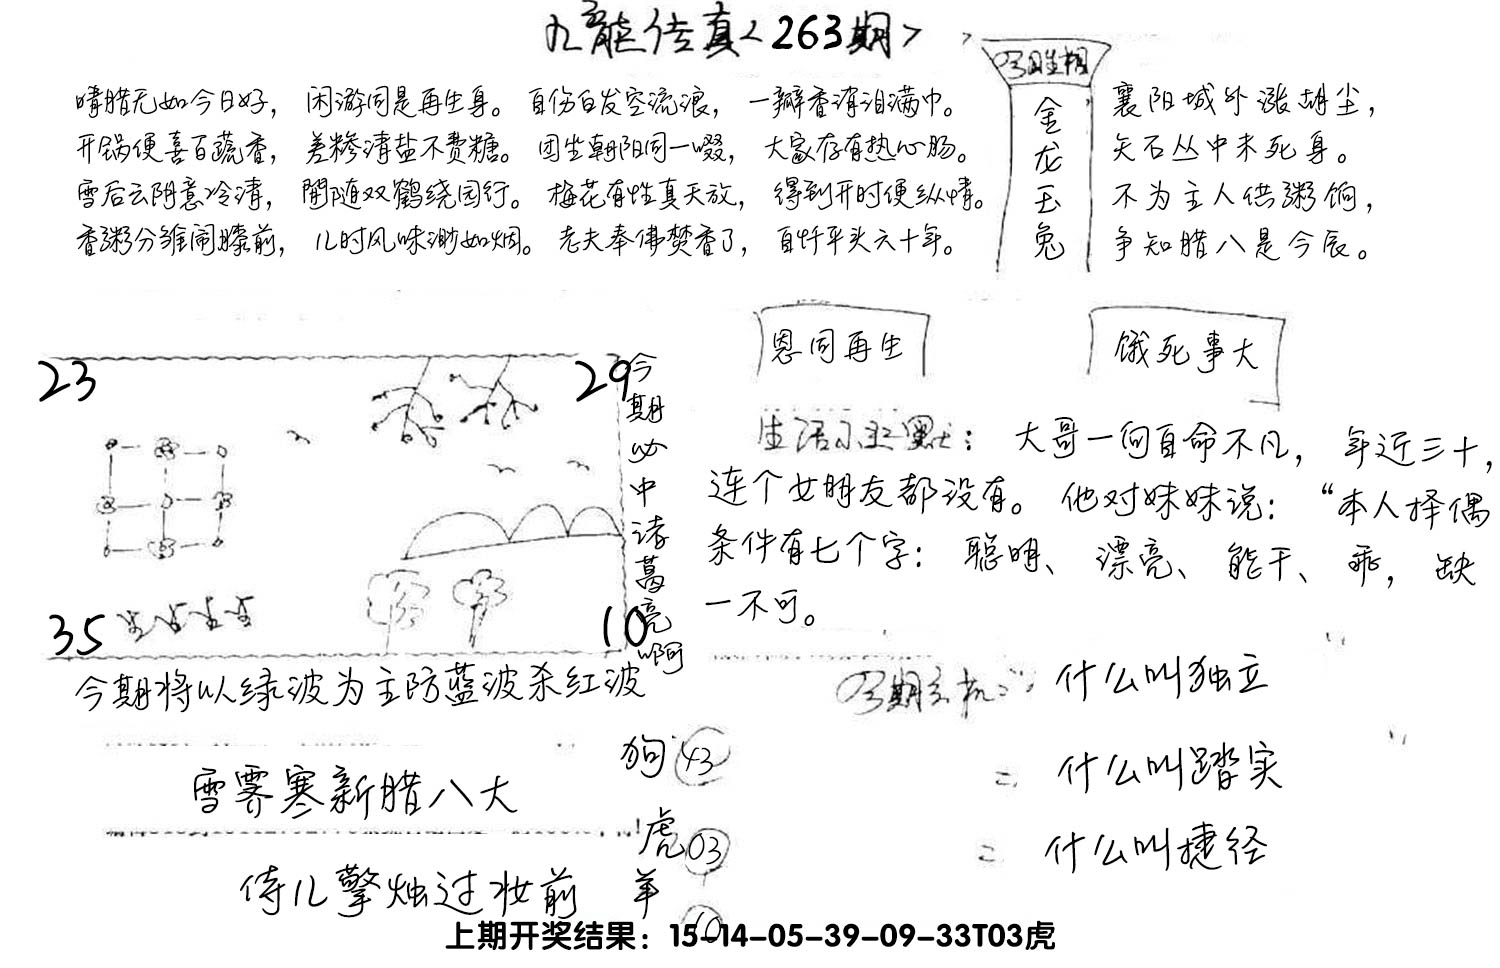 九龙传真<263期>
晴腊无如今日好， 闲游同是再生身。 自伤白发空流浪， 一瓣香消泪满巾。
开锅便喜百蔬香， 差糁清盐不费糖。 团坐朝阳同一啜， 大家存有热心肠。
雪后云阴意冷清， 閒随双鹤绕园行。 梅花有性真天放， 得到开时便纵情。
香粥分雏闹膝前， 儿时风味渺如烟。 老夫奉佛焚香了， 自忏平头六十年。
金龙玉兔
襄阳城外涨胡尘，
矢石丛中未死身。
不为主人供粥饷，
争知腊八是今辰。
恩同再生
饿死事大
23
29
35
10
今期必中诸葛亮啊
生活小幽默： 大哥一向自命不凡， 年近三十，
连个女朋友都没有。 他对妹妹说： “本人择偶
条件有七个字： 聪明、 漂亮、 能干、 乖， 缺
一不可。
今期将以绿波为主防蓝波杀红波
今期玄机： 什么叫独立
什么叫踏实
什么叫捷径
雪霁寒新腊八大
侍儿擎烛过妆前
狗 43
虎 03
羊 10
上期开奖结果：15-14-05-39-09-33T03虎